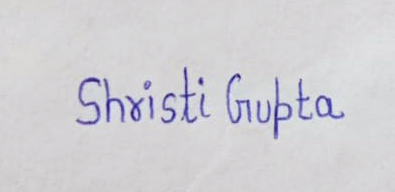 Shristi Gupta